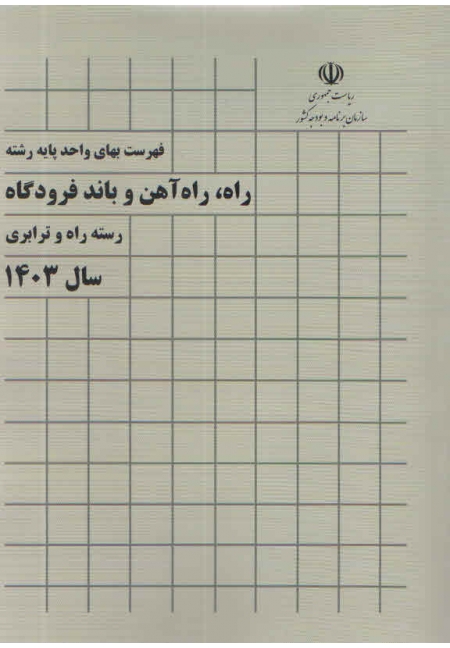 ریاست جمهوری
سازمان برنامه و بودجه کشور
فهرست بهای واحد پایه رشته
راه، راه‌آهن و باند فرودگاه
رسته راه و ترابری
سال ۱۴۰۳